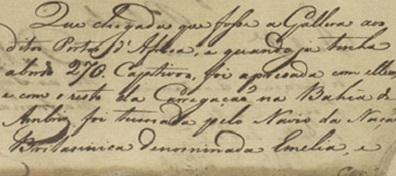 Que chegada que fosse a Gallera aos
ditos Portos d'Africa, e quando ja tinha
abordo 270. Captivos, foi apresada com elles,
e com o resto da Carregação na Bahia de
Ambriz foi tomada pelo Navio da Nação
Britanica denominada Emelia, e